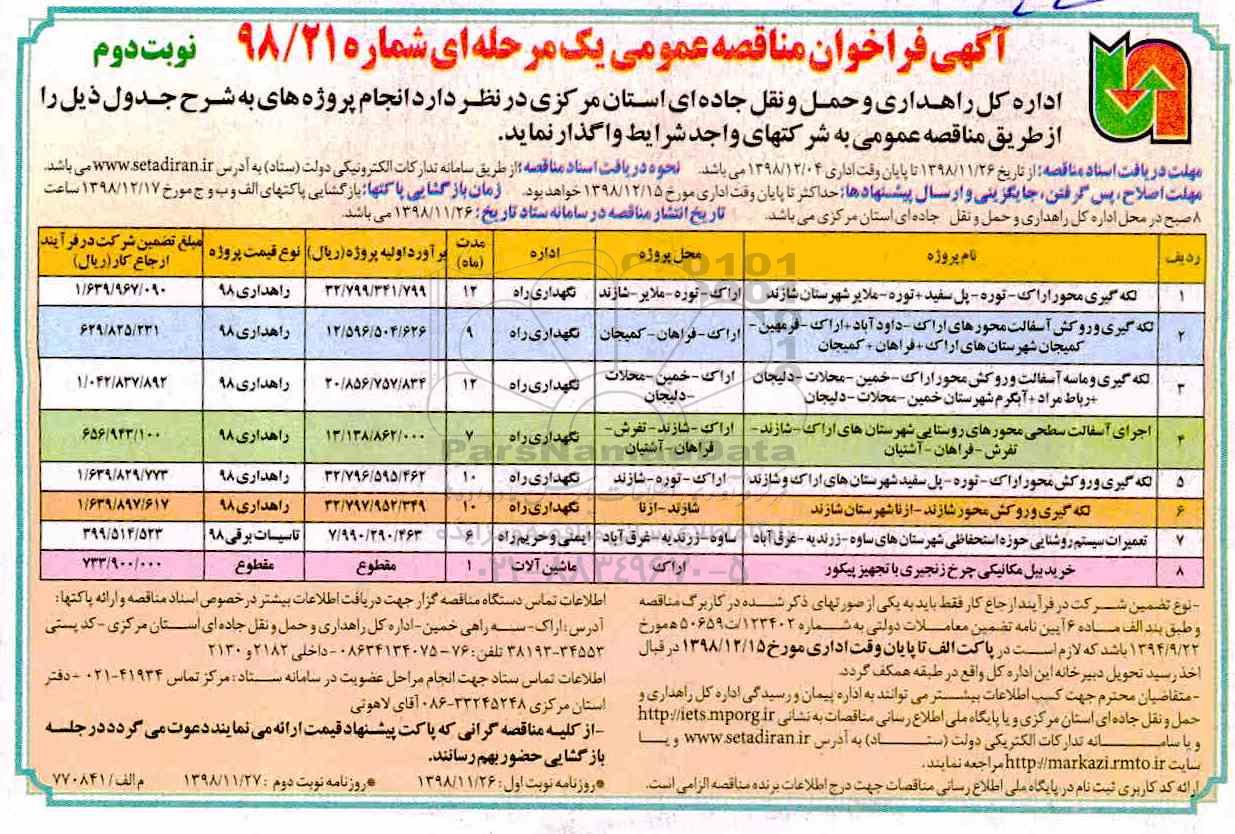 آگهی فراخوان مناقصه عمومی یک مرحله ای شماره ۹۸/۲۱
نوبت دوم
اداره کل راهـداری و حمـل و نقل جاده ای اسـتان مرکزی در نظـر دارد انجام پروژه های به شـرح جـدول ذیل را
از طریق مناقصه عمومی به شرکتهای واجد شرایط واگذار نماید.
مهلت دریافت اسناد مناقصه: از تاریخ ۱۳۹۸/۱۱/۲۶ تا پایان وقت اداری ۱۳۹۸/۱۲/۰۴ می باشد. نحوه دریافت اسناد مناقصه: از طریق سامانه تدارکات الکترونیکی دولت (ستاد) به آدرس www.setadiran.ir می باشد.
مهلت اصلاح، پس گرفتن، جایگزینی وارسـال پیشـنهادها: حداکثر تا پایان وقت اداری مورخ ۱۳۹۸/۱۲/۱۵ خواهد بود. زمان بازگشایی پاکتها: بازگشایی پاکتهای الف و ب و ج مورخ ۱۳۹۸/۱۲/۱۷ ساعت
۸ صبح در محل اداره کل راهداری و حمل و نقل جاده ای استان مرکزی می باشد. تاریخ انتشار مناقصه در سامانه ستاد تاریخ: ۱۳۹۸/۱۱/۲۶ می باشد.
ردیف نام پروژه محل پروژه اداره مدت (ماه) برآورد اولیه پروژه (ریال) نوع قیمت پروژه مبلغ تضمین شرکت در فرآیند ارجاع کار (ریال)
۱ لکه گیری محور اراک - توره - پل سفید + توره - ملایر شهرستان شازند اراک - توره - ملایر - شازند نگهداری راه ۱۲ ۳۲/۷۹۹/۳۴۱/۷۹۹ راهداری ۹۸ ۱/۶۳۹/۹۶۷/۰۹۰
۲ لکه گیری و روکش آسفالت محور های اراک - داود آباد + اراک - فرمهین - کمیجان شهرستان های اراک + فراهان + کمیجان اراک - فراهان - کمیجان نگهداری راه ۹ ۱۲/۵۹۶/۵۰۴/۶۲۶ راهداری ۹۸ ۶۲۹/۸۲۵/۲۳۱
۳ لکه گیری و ماسه آسفالت و روکش محور اراک - خمین - محلات - دلیجان + رباط مراد + آبگرم شهرستان خمین - محلات - دلیجان اراک - خمین - محلات - دلیجان نگهداری راه ۱۲ ۲۰/۸۵۶/۷۵۷/۸۳۴ راهداری ۹۸ ۱/۰۴۲/۸۳۷/۸۹۲
۴ اجرای آسفالت سطحی محور های روستایی شهرستان های اراک - شازند - تفرش - فراهان - آشتیان اراک - شازند - تفرش - فراهان - آشتیان نگهداری راه ۷ ۱۳/۱۳۸/۸۶۲/۰۰۰ راهداری ۹۸ ۶۵۶/۹۴۳/۱۰۰
۵ لکه گیری و روکش محور اراک - توره - پل سفید شهرستان های اراک و شازند اراک - توره - شازند نگهداری راه ۱۰ ۳۲/۷۹۶/۵۹۵/۴۶۲ راهداری ۹۸ ۱/۶۳۹/۸۲۹/۷۷۳
۶ لکه گیری و روکش محور شازند - ازنا شهرستان شازند شازند - ازنا نگهداری راه ۱۰ ۳۲/۷۹۷/۹۵۲/۳۴۹ راهداری ۹۸ ۱/۶۳۹/۸۹۷/۶۱۷
۷ تعمیرات سیستم روشنایی حوزه استحفاظی شهرستان های ساوه - زرندیه - غرق آباد ساوه - زرندیه - غرق آباد ایمنی و حریم راه ۶ ۷/۹۹۰/۲۹۰/۴۶۳ تاسیسات برقی ۹۸ ۳۹۹/۵۱۴/۵۲۳
۸ خرید بیل مکانیکی چرخ زنجیری با تجهیز پیکور اراک ماشین آلات ۱ مقطوع مقطوع ۷۳۳/۹۰۰/۰۰۰
ParsNamadData
۰۲۱-۸۸۳۴۹۶۷۰-۵
- نوع تضمین شـرکت در فرآیند ارجاع کار فقط باید به یکی از صورتهای ذکر شـده در کاربرگ مناقصه
و طبق بند الف مـاده ۶ آیین نامه تضمین معامـلات دولتی به شـماره ۱۲۳۴۰۲/ت۵۰۶۵۹ ه مورخ
۱۳۹۴/۹/۲۲ باشد که لازم اسـت در پاکت الف تا پایان وقت اداری مورخ ۱۳۹۸/۱۲/۱۵ در قبال
اخذ رسید تحویل دبیرخانه این اداره کل واقع در طبقه همکف گردد.
- متقاضیان محترم جهت کسب اطلاعات بیشـتر می توانند به اداره پیمان و رسیدگی اداره کل راهداری و
حمل و نقل جاده ای استان مرکزی و یا پایگاه ملی اطلاع رسانی مناقصات به نشانی http://iets.mporg.ir
و یا سامـانه تدارکات الکتریکی دولت (ستـاد) به آدرس www.setadiran.ir و یـا
سایت http://markazi.rmto.ir مراجعه نمایند.
ارائه کد کاربری ثبت نام در پایگاه ملی اطلاع رسانی مناقصات جهت درج اطلاعات برنده مناقصه الزامی است.
اطلاعات تماس دستگاه مناقصه گزار جهت دریافت اطلاعات بیشتر در خصوص اسناد مناقصه و ارائه پاکتها:
آدرس: اراک- سـه راهی خمین- اداره کل راهداری و حمل و نقل جاده ای اسـتان مرکزی - کد پستی
۳۸۱۹۳-۳۴۵۵۳ تلفن: ۷۶ - ۰۸۶۳۴۱۳۴۰۷۵ - داخلی ۲۱۸۲ و ۲۱۳۰
اطلاعات تماس ستاد جهت انجام مراحل عضویت در سامانه سـتاد: مرکز تماس ۴۱۹۳۴-۰۲۱ - دفتر
استان مرکزی ۳۳۲۴۵۲۴۸-۰۸۶ آقای لاهوتی
- از کلیـه مناقصه گرانی که پاکت پیشـنهاد قیمت ارائه می نمایند دعوت می گردد در جلسـه
بازگشایی حضور بهم رسانند.
*روزنامه نوبت اول: ۱۳۹۸/۱۱/۲۶ *روزنامه نوبت دوم: ۱۳۹۸/۱۱/۲۷ م الف/۷۷۰۸۴۱